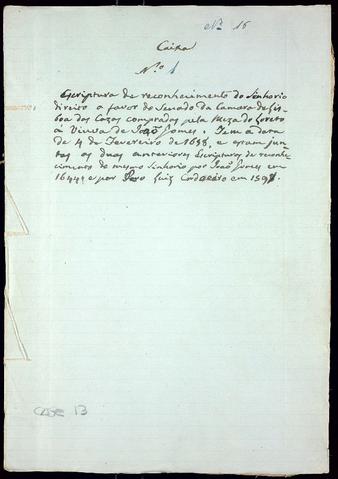 Nº 16
Caixa
Nº 1
Escriptura de reconhecimento do Senhorio
direito a favor do Senado da Camara de Lis-
boa das Cazas compradas pela Meza do Loreto
á Viuva de João Gomes. Tem a data
de 4 de Fevereiro de 1658, e estam jun-
tas as duas anteriores Escripturas de reconhe-
cimento do mesmo Senhorio por João Gomes em
1644, e por Pero Luiz Cordeiro em 159
CASE 13